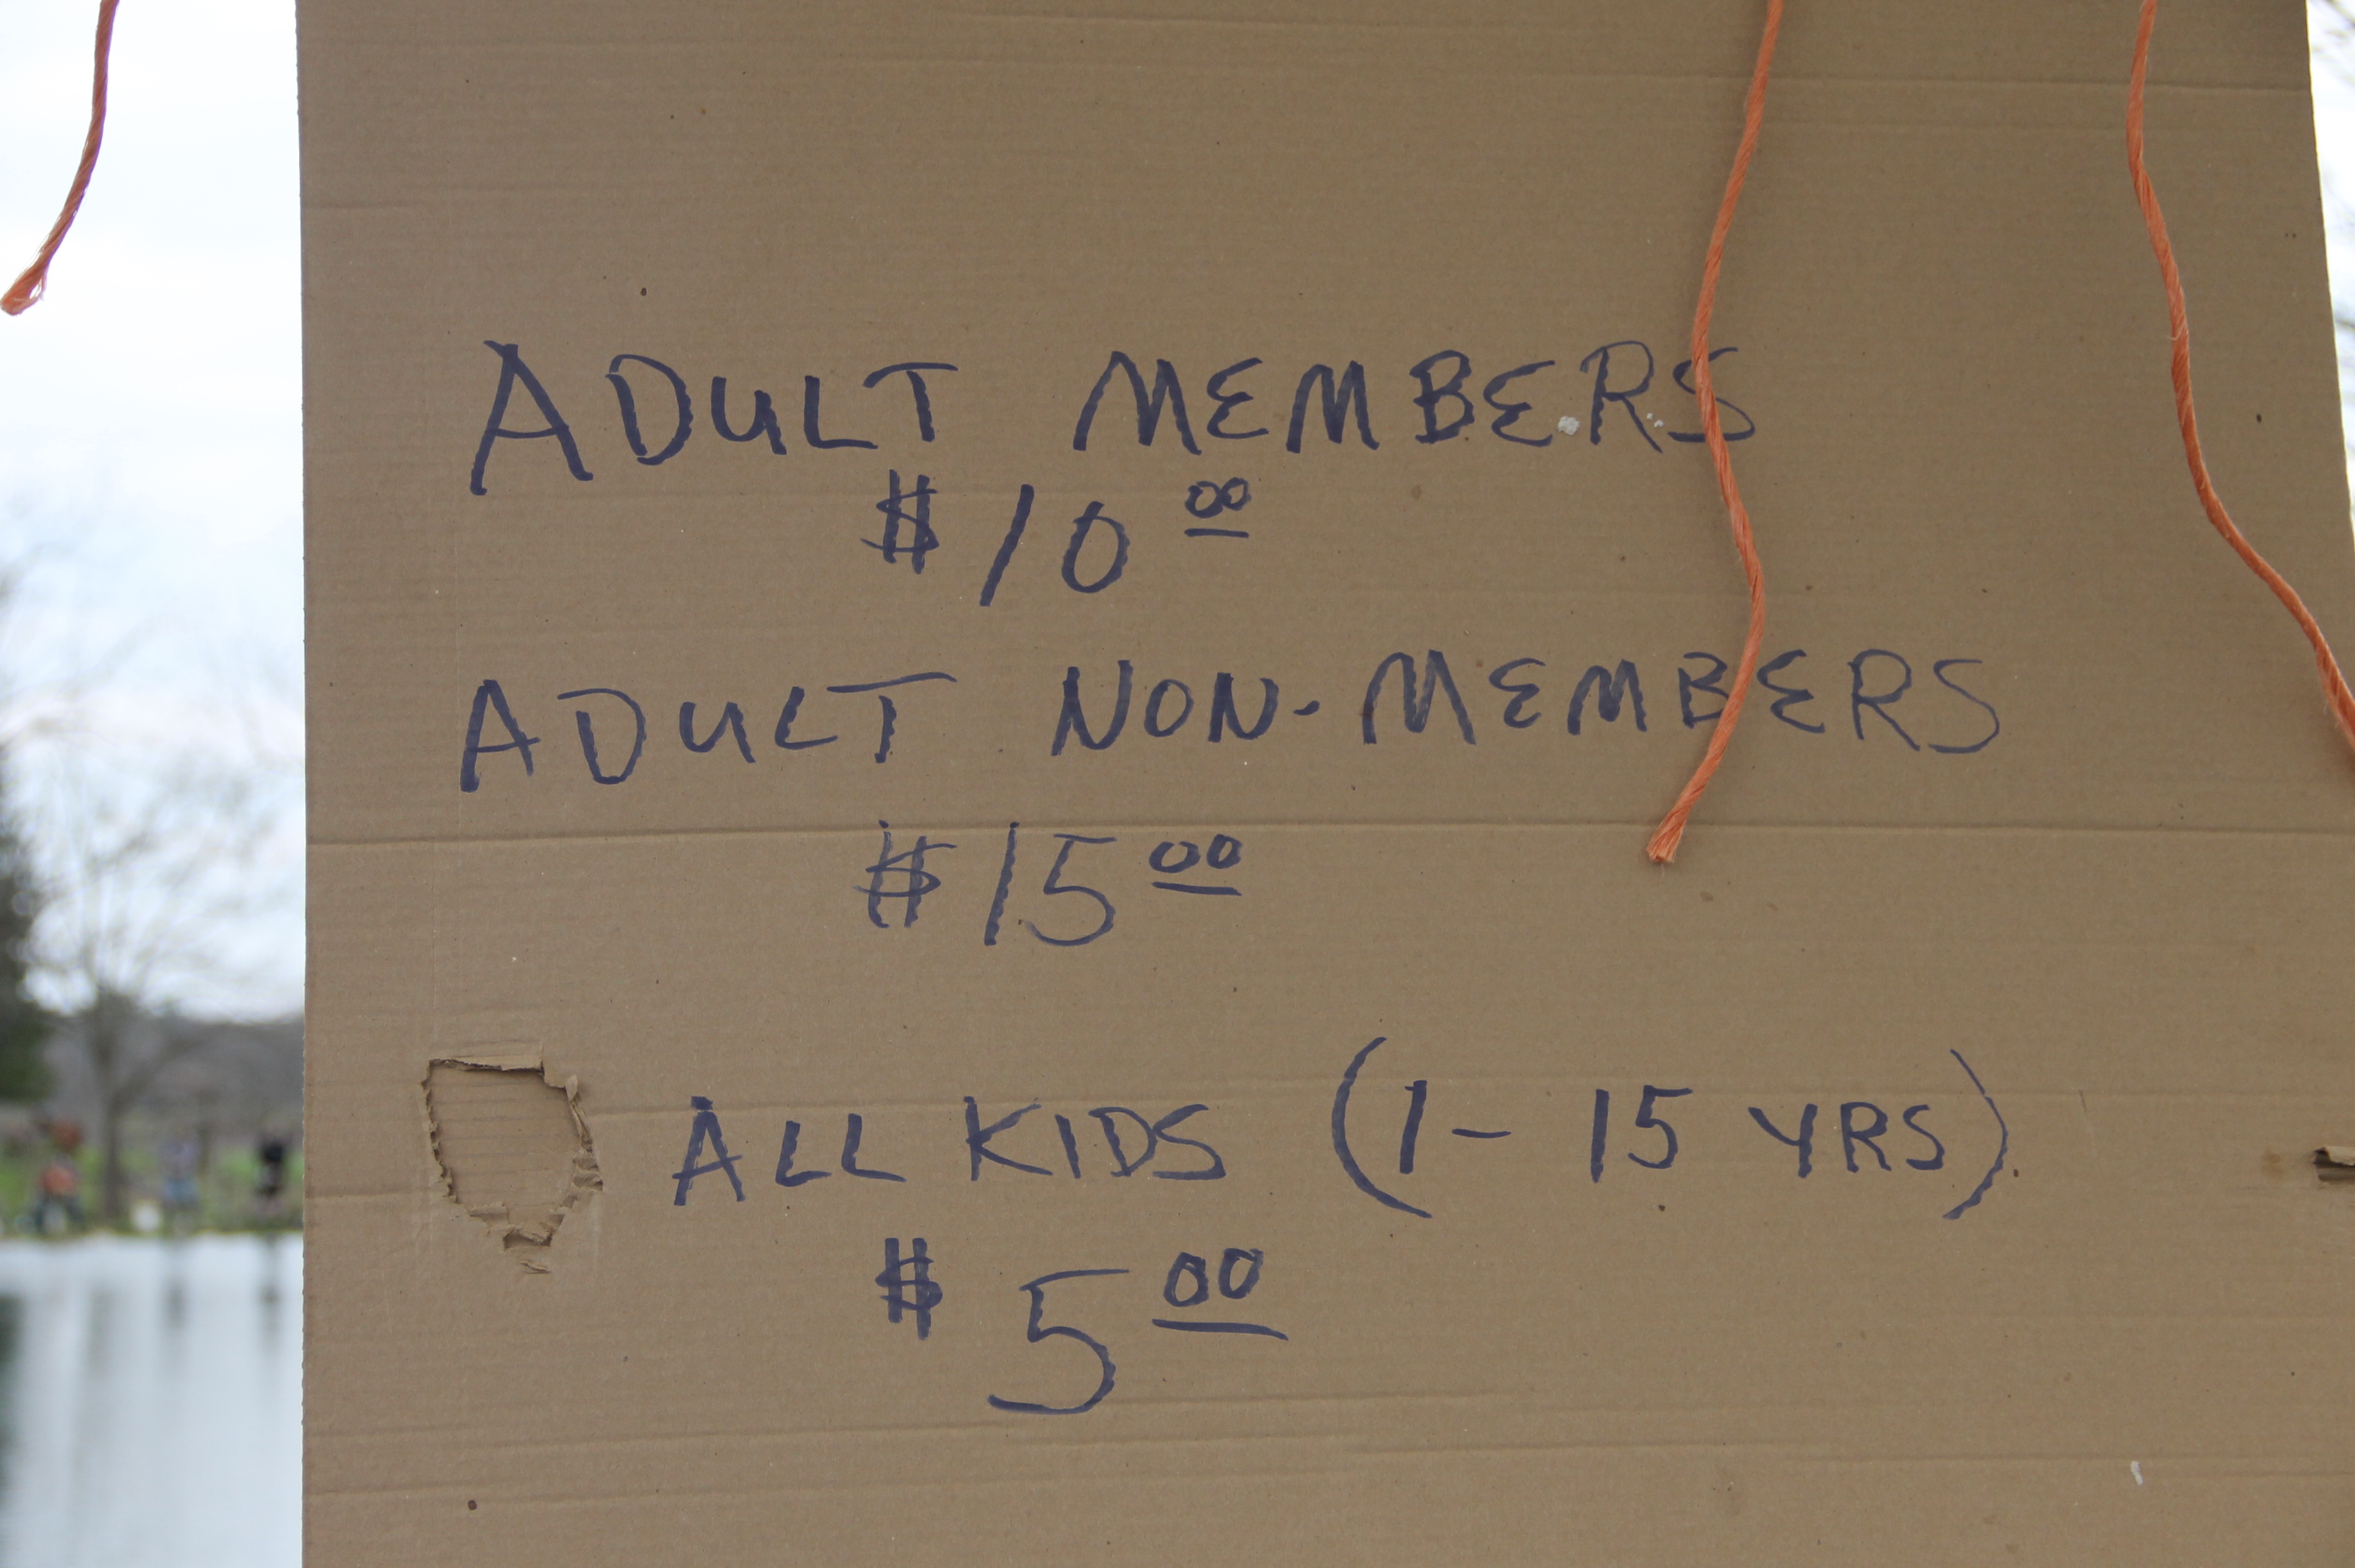 ADULT MEMBERS
$10 00
ADULT NON-MEMBERS
$15 00
ALL KIDS (1-15 YRS)
$5 00